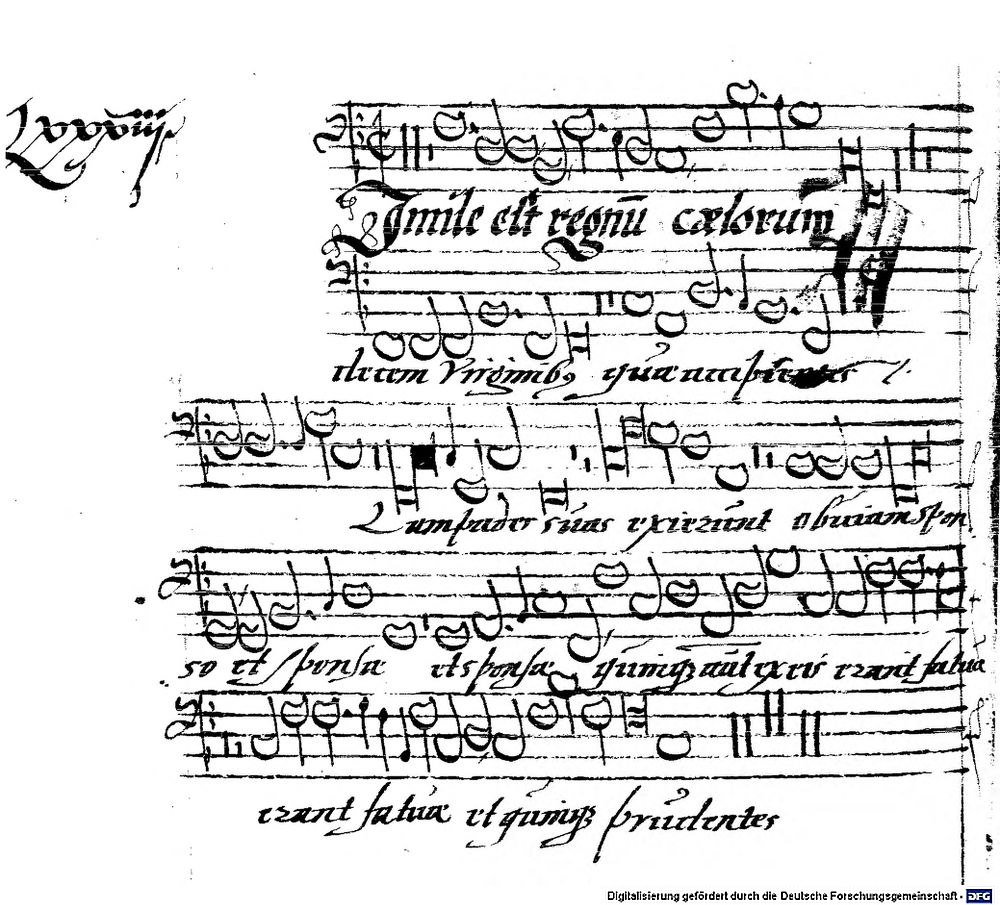 Lxxxviij
Simile est regnū cælorum
decem Virginibꝯ quæ accipientes
Lampades suas exierunt obuiam spon
so et sponsæ et sponsæ quinqꝫ aūt ex eis erant fatuæ
erant fatuæ et quinqꝫ prudentes
Digitalisierung gefördert durch die Deutsche Forschungsgemeinschaft - DFG